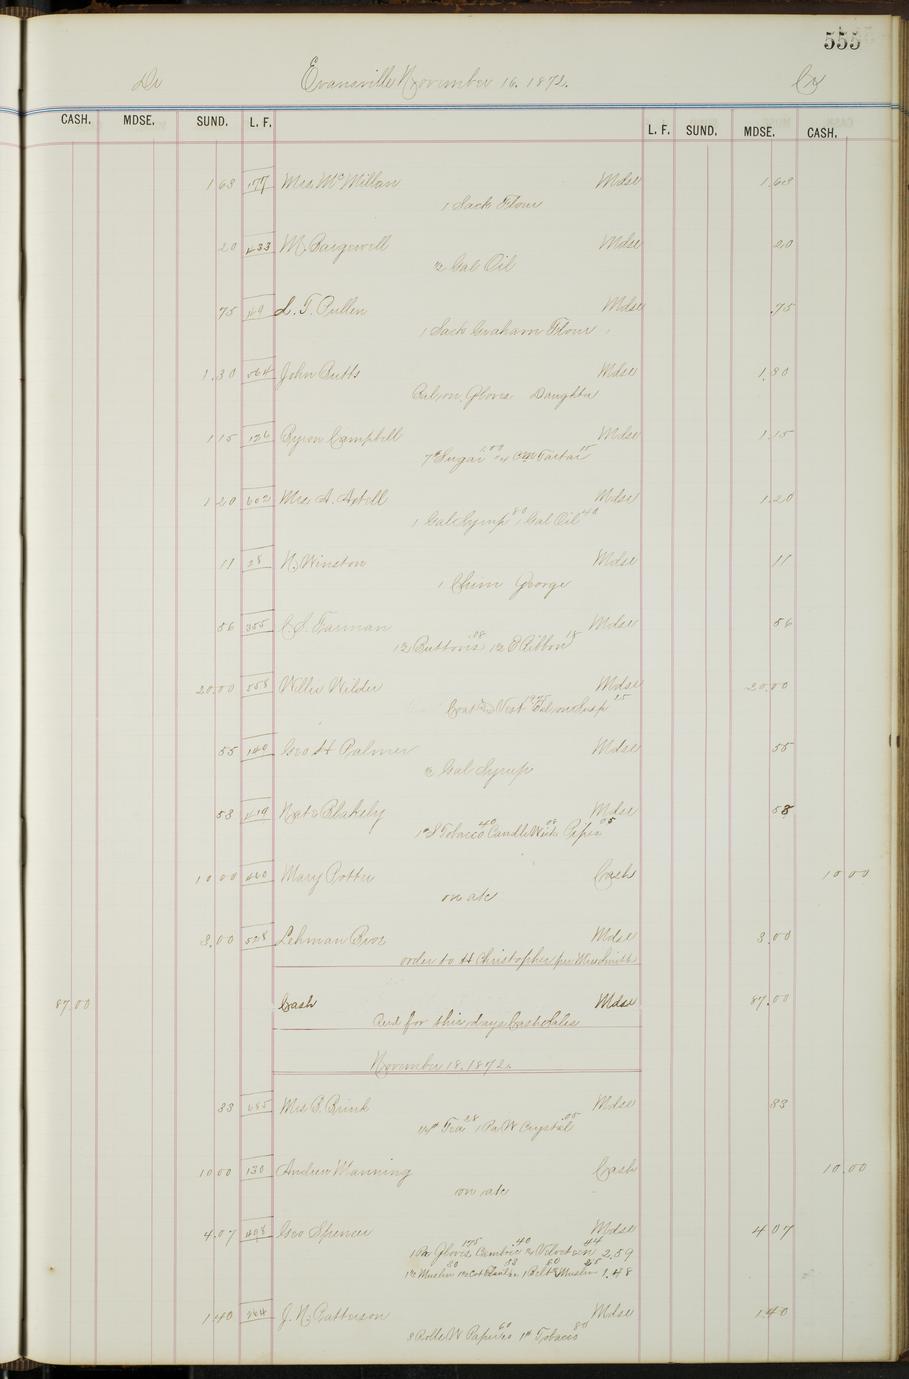 555
Dr Evansville November 16. 1872. Cr
CASH. MDSE. SUND. L. F. L. F. SUND. MDSE. CASH.
1 63 177 Mrs McMillan Mdse 1.63
1 Sack Flour
20 433 M. Mdse 20
½ Gal Oil
75 L. T. Pullen Mdse .75
1 Sack Graham Flour
1.30 John Butts Mdse 1.30
Gloves Daughter
1 15 126 Byron Campbell Mdse 1.15
7# Sugar 1.00 Cr Tartar 15
1 20 602 Mrs A. Mdse 1.20
1 Gal Syrup 80 1 Gal Oil 40
11 28 N. Winston Mdse 11
1 George
56 355 C. S. Farman Mdse 56
Buttons Ribbon 18
20.00 558 Willie Wilder Mdse 20.00
Coat & Vest 19 75 25
55 140 Geo H Palmer Mdse 55
½ Gal Syrup
53 419 Nat Blakely Mdse 58
Tobacco 40 Candle Wick 08 Pipes 05
10 00 Mary Potter Cash 10 00
on a/c
3.00 528 Lehman Bros Mdse 3.00
order to H Christopher per
87.00 Cash Mdse 87.00
Recd for this days Cash Sales
November 18. 1872.
83 Mrs B. Brink Mdse 83
Tea 1 Pa W Crystal .05
10 00 130 Andrew Manning Cash 10.00
on a/c
4.07 408 Geo Spencer Mdse 4 07
1 Pr Gloves 1 75 Cambric 40 Velveteen 44 2.59
Muslin 1 Belt Muslin 25 1.48
1 40 264 J. N. Patterson Mdse 1.40
8 Rolls W Paper 60 1# Tobacco 80